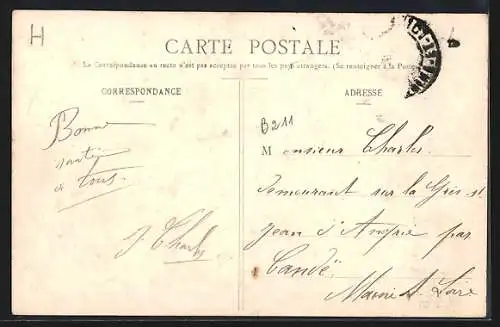 H
CARTE POSTALE
La Correspondance au recto n'est pas acceptée par tous les pays étrangers. (Se renseigner à la Poste)
CORRESPONDANCE
ADRESSE
Bonne
santée
à tous.
J. Charles
B211
Monsieur Charles
demeurant sur la
Jean d'Angrie par
Candé
Maine & Loire